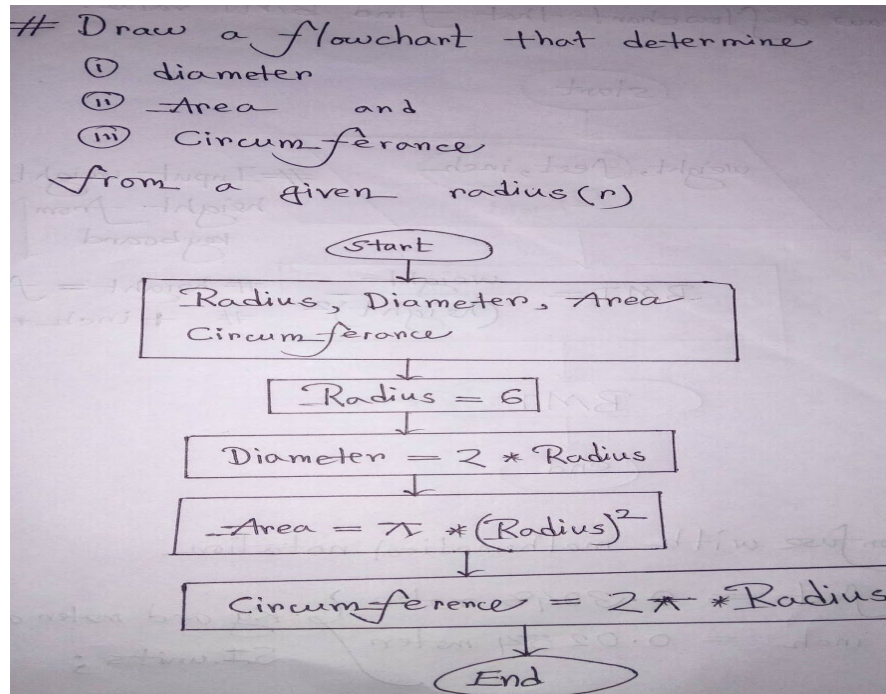 # Draw a flowchart that determine
(i) diameter
(ii) Area and
(iii) Circumferance
from a given radius(r)
Start
Radius, Diameter, Area
Circumferance
Radius = 6
Diameter = 2 * Radius
Area = π * (Radius)²
Circumference = 2π * Radius
End